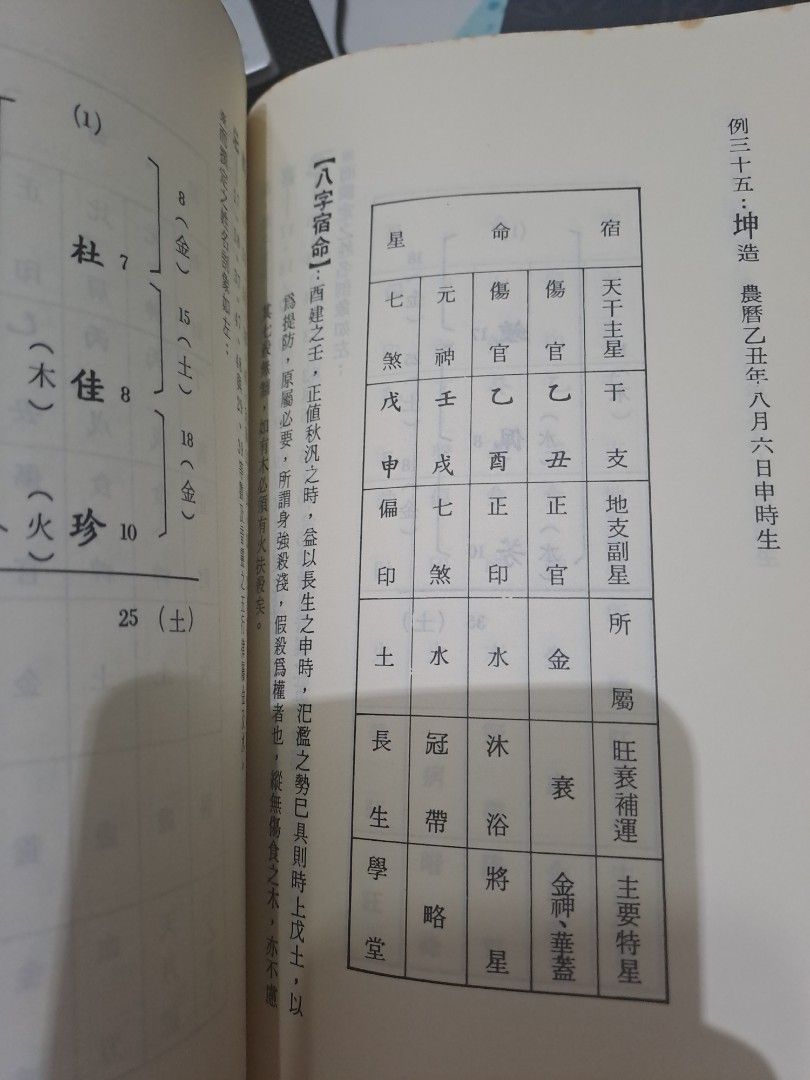 例三十五：坤造　農曆乙丑年八月六日申時生
宿命星
天干主星　傷官　傷官　元神　七煞
干支　乙丑　乙酉　壬戌　戊申
地支副星　正官　正印　七煞　偏印
所屬　金　水　水　土
旺衰補運　衰　沐浴　冠帶　長生
主要特星　金神、華蓋　將星　略　學堂
【八字宿命】：酉建之壬，正值秋汎之時，益以長生之申時，汜濫之勢巳具則時上戊土，以
爲提防，原屬必要，所謂身強殺淺，假殺爲權者也，縱無傷食之木，亦不慮
其七殺無制，如有木必須有火扶殺矣。
(1)
杜 7
佳 8 (木)
珍 10 (火)
8 (金)
15 (土)
18 (金)
25 (土)